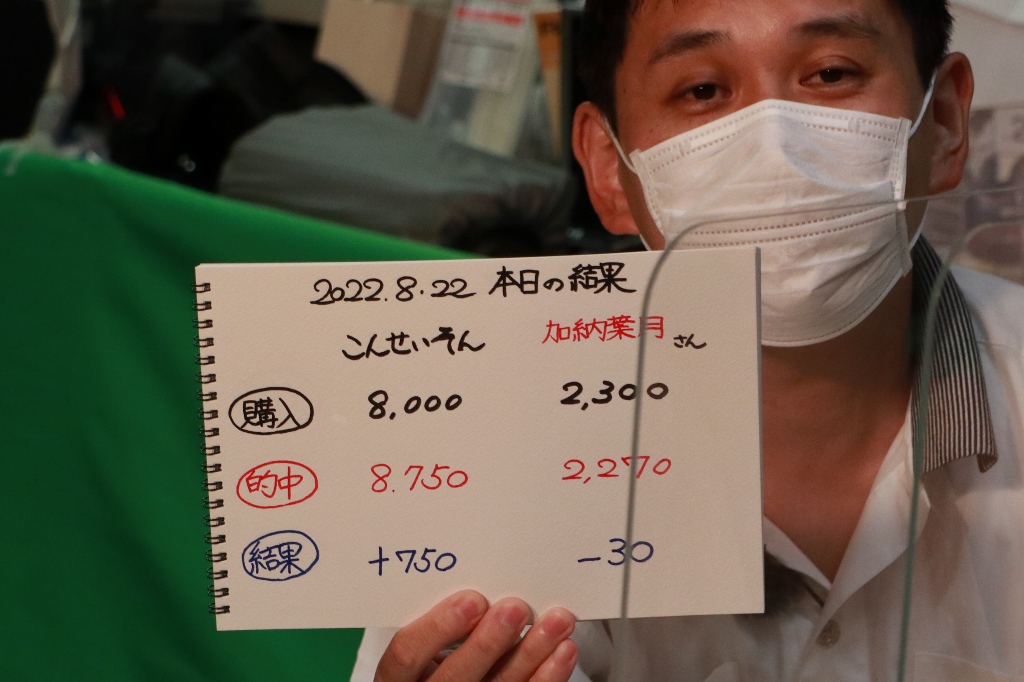 2022.8.22 本日の結果
こんせいそん 加納葉月さん
購入 8,000 2,300
的中 8.750 2,270
結果 +750 -30